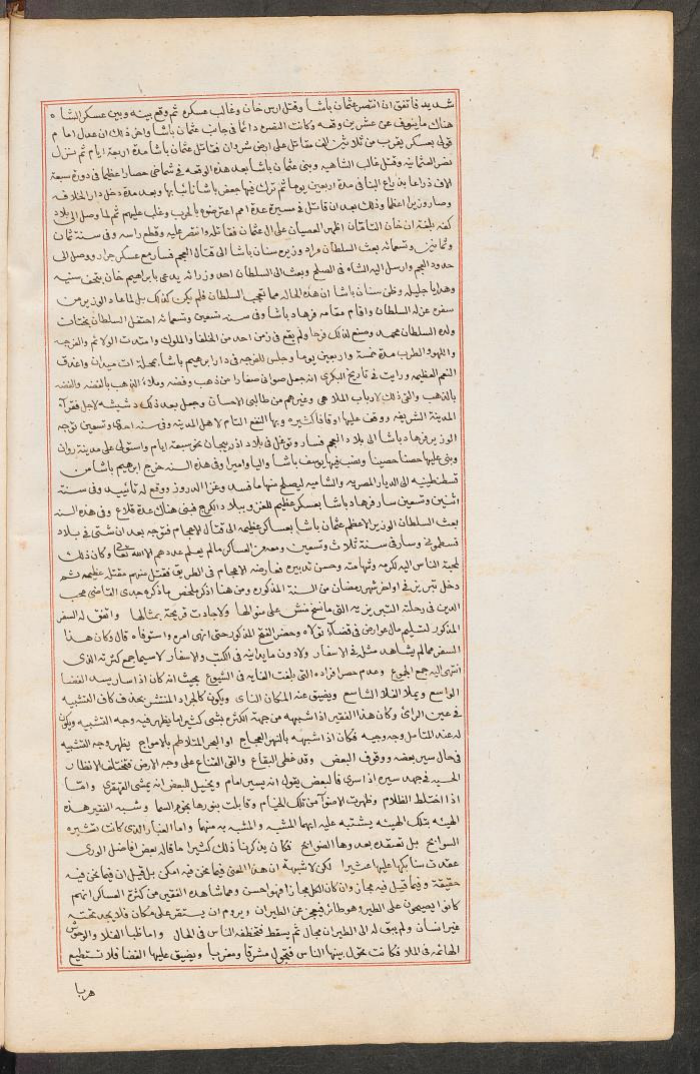 شديد فاتفق ان انتصر عثمان باشا وقتل ارس خان وغالب عسكره ثم وقع بينه وبين عسكر الشاه
هناك ما ينوف عن عشرين وقعه وكانت النصره دائما في جانب عثمان باشا واخر ذلك ان عدل امام
قولي بعسكر يقرب من ثلاثين الف مقاتل على ارض شروان فقاتل عثمان باشا مدة اربعة ايام ثم نزل
نصر العثمانيه وقتل غالب الشاهيه وبنى عثمان باشا بعد هذه الوقعه في شماخي حصارا عظيما في دوره سبعة
الاف ذراعا بذراع البنا في مدة اربعين يوما ثم ترك فيها جعفر باشا نائبا بها وبعد مدة دخل دار الخلافه
وصار وزيرا اعظما وذلك بعد ان قاتل في مسيره عدة امم اعترضوه بالحرب وغلب عليهم ثم لما وصل الى بلاد
كفه بلغه ان خان التاتار اظهر العصيان على ال عثمان فقاتله وانتصر عليه وقطع راسه وفي سنة ثمان
وثمانين وتسعمائه بعث السلطان مراد وزيره سنان باشا الى قتال العجم فسار مع عسكر جرار ووصل الى
حدود العجم وارسل اليه الشاه في الصلح وبعث الى السلطان احد وزرائه يدعى بابراهيم خان بتحف سنيه
وهدايا جليله وظن سنان باشا ان هذه الحاله مما تعجب السلطان فلم يكن كذلك بل لما عاد الوزير من
سفره عزله السلطان واقام مقامه فرهاد باشا وفي سنه تسعين وتسعمائه احتفل السلطان بختان
ولده السلطان محمد وصنع لذلك فرحا ولم يقع في زمن احد من الخلفا والملوك وامتدت الولائم والفرجه
واللهو والطرب مدة خمسة واربعين يوما وجلس للفرجه في دار ابرهيم باشا بمحلة ات ميدان واغدق
النعم العظيمه ورايت في تاريخ البكري انه جعل صواني صغارا من ذهب وفضه وملاء الذهب بالفضه والفضه
بالذهب والقى ذلك لارباب الملاهي وغيرهم من طالبي الاحسان وجعل بعد ذلك دشيشه لاجل فقراء
المدينة الشريفه ووقف عليها اوقافا كثيره وبها النفع التام لاهل المدينه وفي سنه احدى وتسعين توجه
الوزير فرهاد باشا الى بلاد العجم فسار وتوغل في بلاد اذربيجان نحو سبعة ايام واستولى على مدينة روان
وبنى عليها حصنا حصينا ونصب فيها يوسف باشا واليا واميرا وفي هذه السنه خرج ابرهيم باشا من
قسطنطينيه الى الديار المصريه والشاميه ليصلح منها ما فسد وغزا الدروز ووقع له تاييد وفي سنة
اثنين وتسعين سار فرهاد باشا بعسكر عظيم للغزو ببلاد الكرج فبنى هناك عدة قلاع وفي هذه السنه
بعث السلطان الوزير الاعظم عثمان باشا بعساكر عظيمه الى قتال الاعجام فتوجه بعد ان شتى في بلاد
قسطموني وسار في سنة ثلاث وتسعين ومعه من العساكر ما لم يعلم عددهم الا الله تعالى وكان ذلك
لمحبة الناس اليه لكرمه وشهامته وحسن تدبيره فعارضه الاعجام في الطريق فقتل منهم مقتله عظيمه ثم
دخل تبريز في اواخر شهر رمضان من السنة المذكوره ومن هنا اذكر ملخص ما ذكره جدي القاضي محب
الدين في رحلته التبريزيه التي ما نسخ منش على منوالها ولا جادت قريحة بمثالها واتفق له السفر
المذكور لتسليم مال عوارض في قضاء تولاه وحضر الفتح المذكور حتى انهى امره واستوفاه قال وكان هذا
السفر مما لم يشاهد مثله في الاسفار ولا دون ما يدانيه في الكتب والاسفار لا سيما جمع كثرته الذي
انتهى اليه جمع الجموع وعدم حصر افراده التي بلغت الغايه في الشيوع بحيث انه كان اذا سار يسد الفضا
الواسع ويملا الفلا الشاسع ويضيق عنه المكان الناى ويكون كالجراد المنتشر بحذف كاف التشبيه
في عين الرائ وكان هذا الفقير اذا شبهه من جهة الكثره بشى كثيرا ما يظهر فيه وجه التشبيه ويكون
له عند المتامل وجه وجيه فكان اذا شبهه بالنهر العجاج او البحر المتلاطم بالامواج يظهر وجه التشبيه
في حال سير بعضه ووقوف البعض وقد غطى البقاع والقى القناع على وجه الارض فتختلف الانظار
الحسيه في جهد سيره اذا سرى فالبعض يقول انه يسير امام ويخيل للبعض انه يمشى القهقرى واما
اذا اختلط الظلام وظهرت الاضواء من تلك الخيام وقابلت بنورها نجوم السما وشبه الفقير هذه
الهيئه بتلك الهيئه يشتبه عليه ايهما المشبه والمشبه به منهما واما الغبار الذي كانت تثيره
السوابح بل تعقده بعدوها الضوابح فكان يذكرنا ذلك كثيرا ما قاله بعض افاضل الورى
عقدت سنابكها عليها عثيرا لكن لا شبهة ان هذا المعنى فيما نحن فيه امكن بل قيل ان فيما نحن فيه
حقيقة وفيما قيل فيه مجاز وان كان لكل مجاز فهو احسن ومما شاهده الفقير من كثرة العساكر انهم
كانوا يصيحون على الطير وهو طائر فيعجز عن الطيران ويروم ان يستقر على مكان فلا يجد تحته
غير انسان ولم يبق له الى الطيران مجال ثم يسقط فتخطفه الناس في الحال واما ظبا الفلا والوحوش
الهائمه في الملا فكانت تحول بينها الناس فتجول مشرقا ومغربا ويضيق عليها الفضا فلا تستطيع
هربا